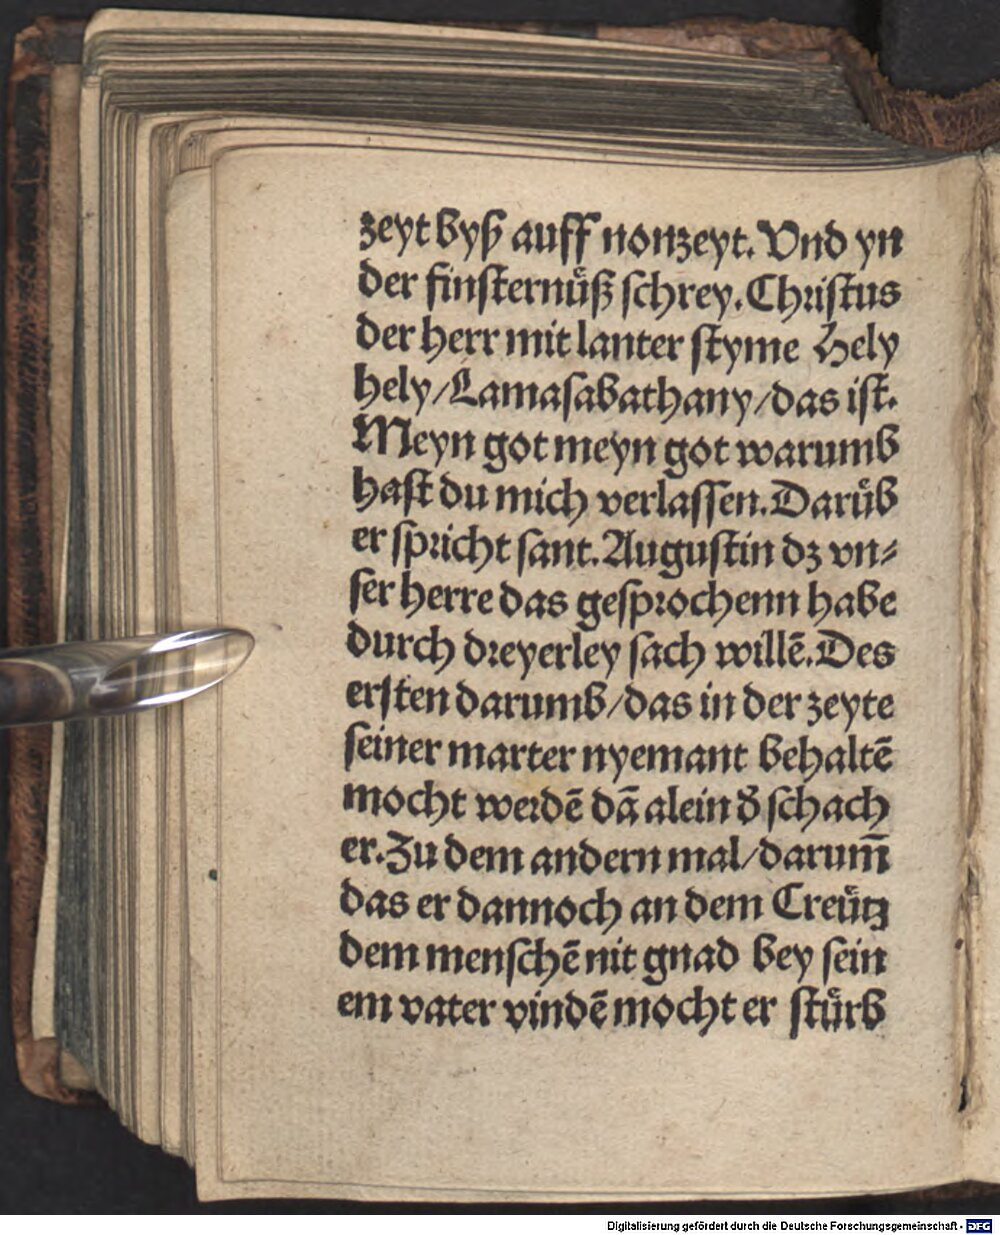 zeyt byß auff nonzeyt. Vnd yn
der finsternuͤß schrey. Christus
der herr mit lanter styme Hely
hely/Lamasabathany/das ist.
Meyn got meyn got warumb
hast du mich verlassen. Daruͤb
er spricht sant. Augustin dz vn⸗
ser herre das gesprochenn habe
durch dreyerley sach willē. Des
ersten darumb/das in der zeyte
seiner marter nyemant behaltē
mocht werdē dā alein d̓ schach
er. Zu dem andern mal/darum̄
das er dannoch an dem Creuͤtz
dem menschē nit gnad bey sein
em vater vindē mocht er stuͤrb
Digitalisierung gefördert durch die Deutsche Forschungsgemeinschaft - DFG